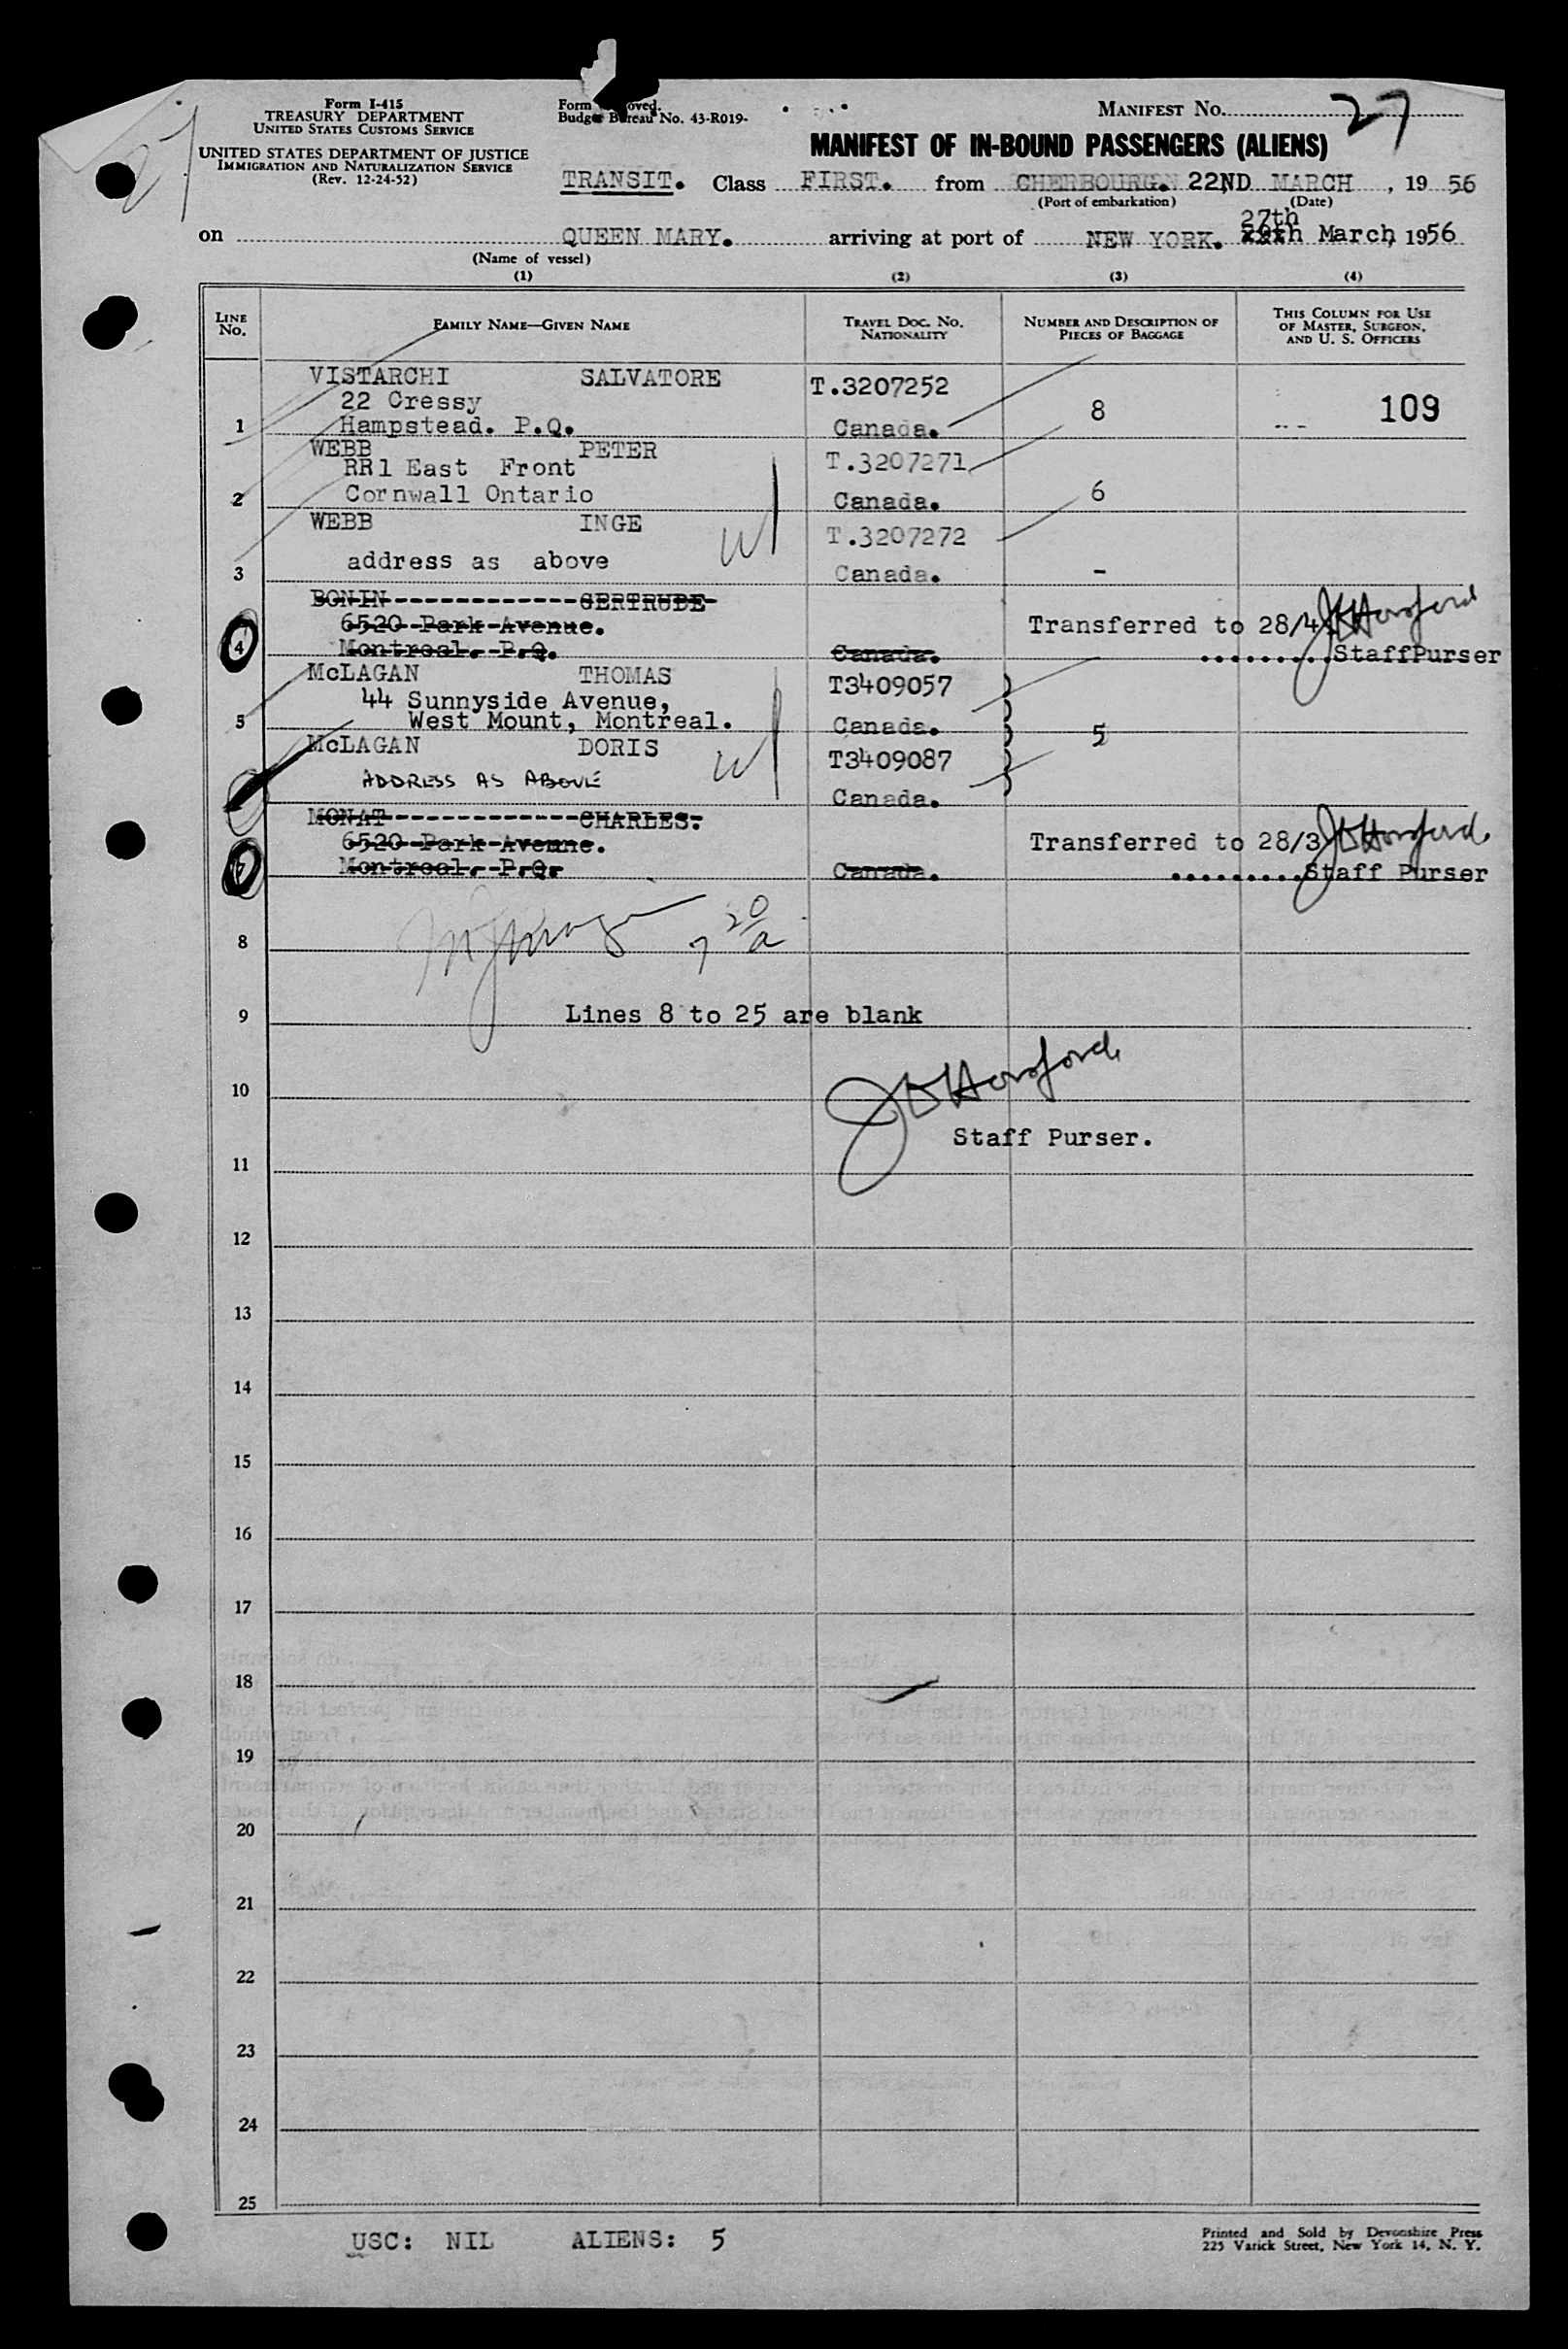 Form I-415
TREASURY DEPARTMENT
UNITED STATES CUSTOMS SERVICE
UNITED STATES DEPARTMENT OF JUSTICE
IMMIGRATION AND NATURALIZATION SERVICE
(Rev. 12-24-52)
Form oved.
Budget Bureau No. 43-R019-
MANIFEST No. 27
MANIFEST OF IN-BOUND PASSENGERS (ALIENS)
TRANSIT. Class FIRST. from CHERBOURG. 22ND MARCH, 19 56
(Port of embarkation) (Date)
27th
on QUEEN MARY. arriving at port of NEW YORK. xxxh March, 1956
(Name of vessel)
(1) (2) (3) (4)
LINE No. FAMILY NAME—GIVEN NAME TRAVEL DOC. No. NATIONALITY NUMBER AND DESCRIPTION OF PIECES OF BAGGAGE THIS COLUMN FOR USE OF MASTER, SURGEON, AND U. S. OFFICERS
VISTARCHI SALVATORE T.3207252
22 Cressy 8 109
1 Hampstead. P.Q. Canada.
WEBB PETER T.3207271
RR1 East Front
2 Cornwall Ontario Canada. 6
WEBB INGE T.3207272
W
3 address as above Canada. -
BONIN GERTRUDE
6520 Park Avenue. Transferred to 28/4 JDHorsford
4 Montreal. P.Q. Canada. .........StaffPurser
McLAGAN THOMAS T3409057
44 Sunnyside Avenue,
5 West Mount, Montreal. Canada. 5
McLAGAN DORIS T3409087
W
ADDRESS AS ABOVE Canada.
MONAT CHARLES.
6520 Park Avenue. Transferred to 28/3 JDHorsford
7 Montreal. P.Q. Canada. .........Staff Purser
7 20/a
8
9 Lines 8 to 25 are blank
JDHorsford
10
Staff Purser.
11
12
13
14
15
16
17
18
19
20
21
22
23
24
25
USC: NIL ALIENS: 5
Printed and Sold by Devonshire Press
225 Varick Street, New York 14, N. Y.